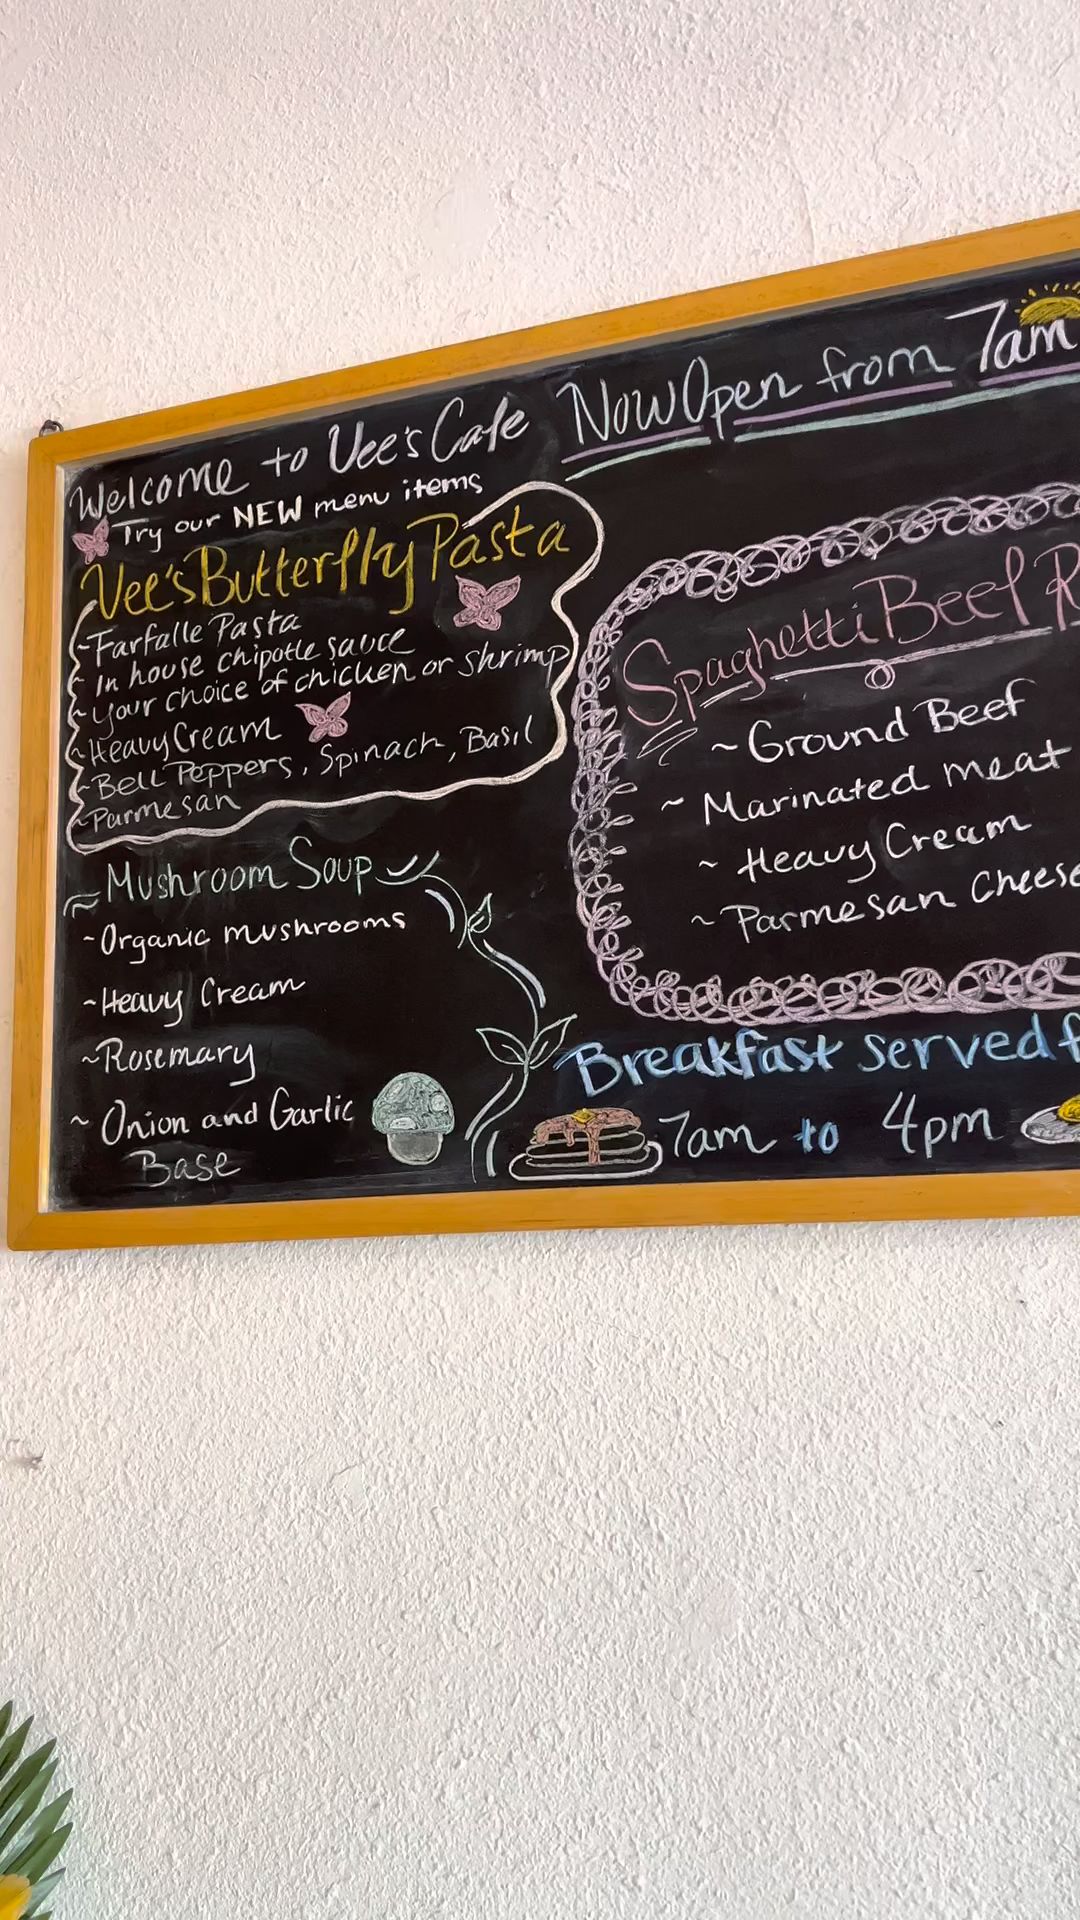 Welcome to Vee's Cafe
Now Open from 7am
Try our NEW menu items
Vee's Butterfly Pasta
~Farfalle Pasta
~In house chipotle sauce
~Your choice of chicken or shrimp
~Heavy Cream
~Bell Peppers, Spinach, Basil
~Parmesan
~Mushroom Soup
~Organic mushrooms
~Heavy Cream
~Rosemary
~Onion and Garlic
Base
Spaghetti Beef
~Ground Beef
~Marinated meat
~Heavy Cream
~Parmesan Cheese
Breakfast served
7am to 4pm